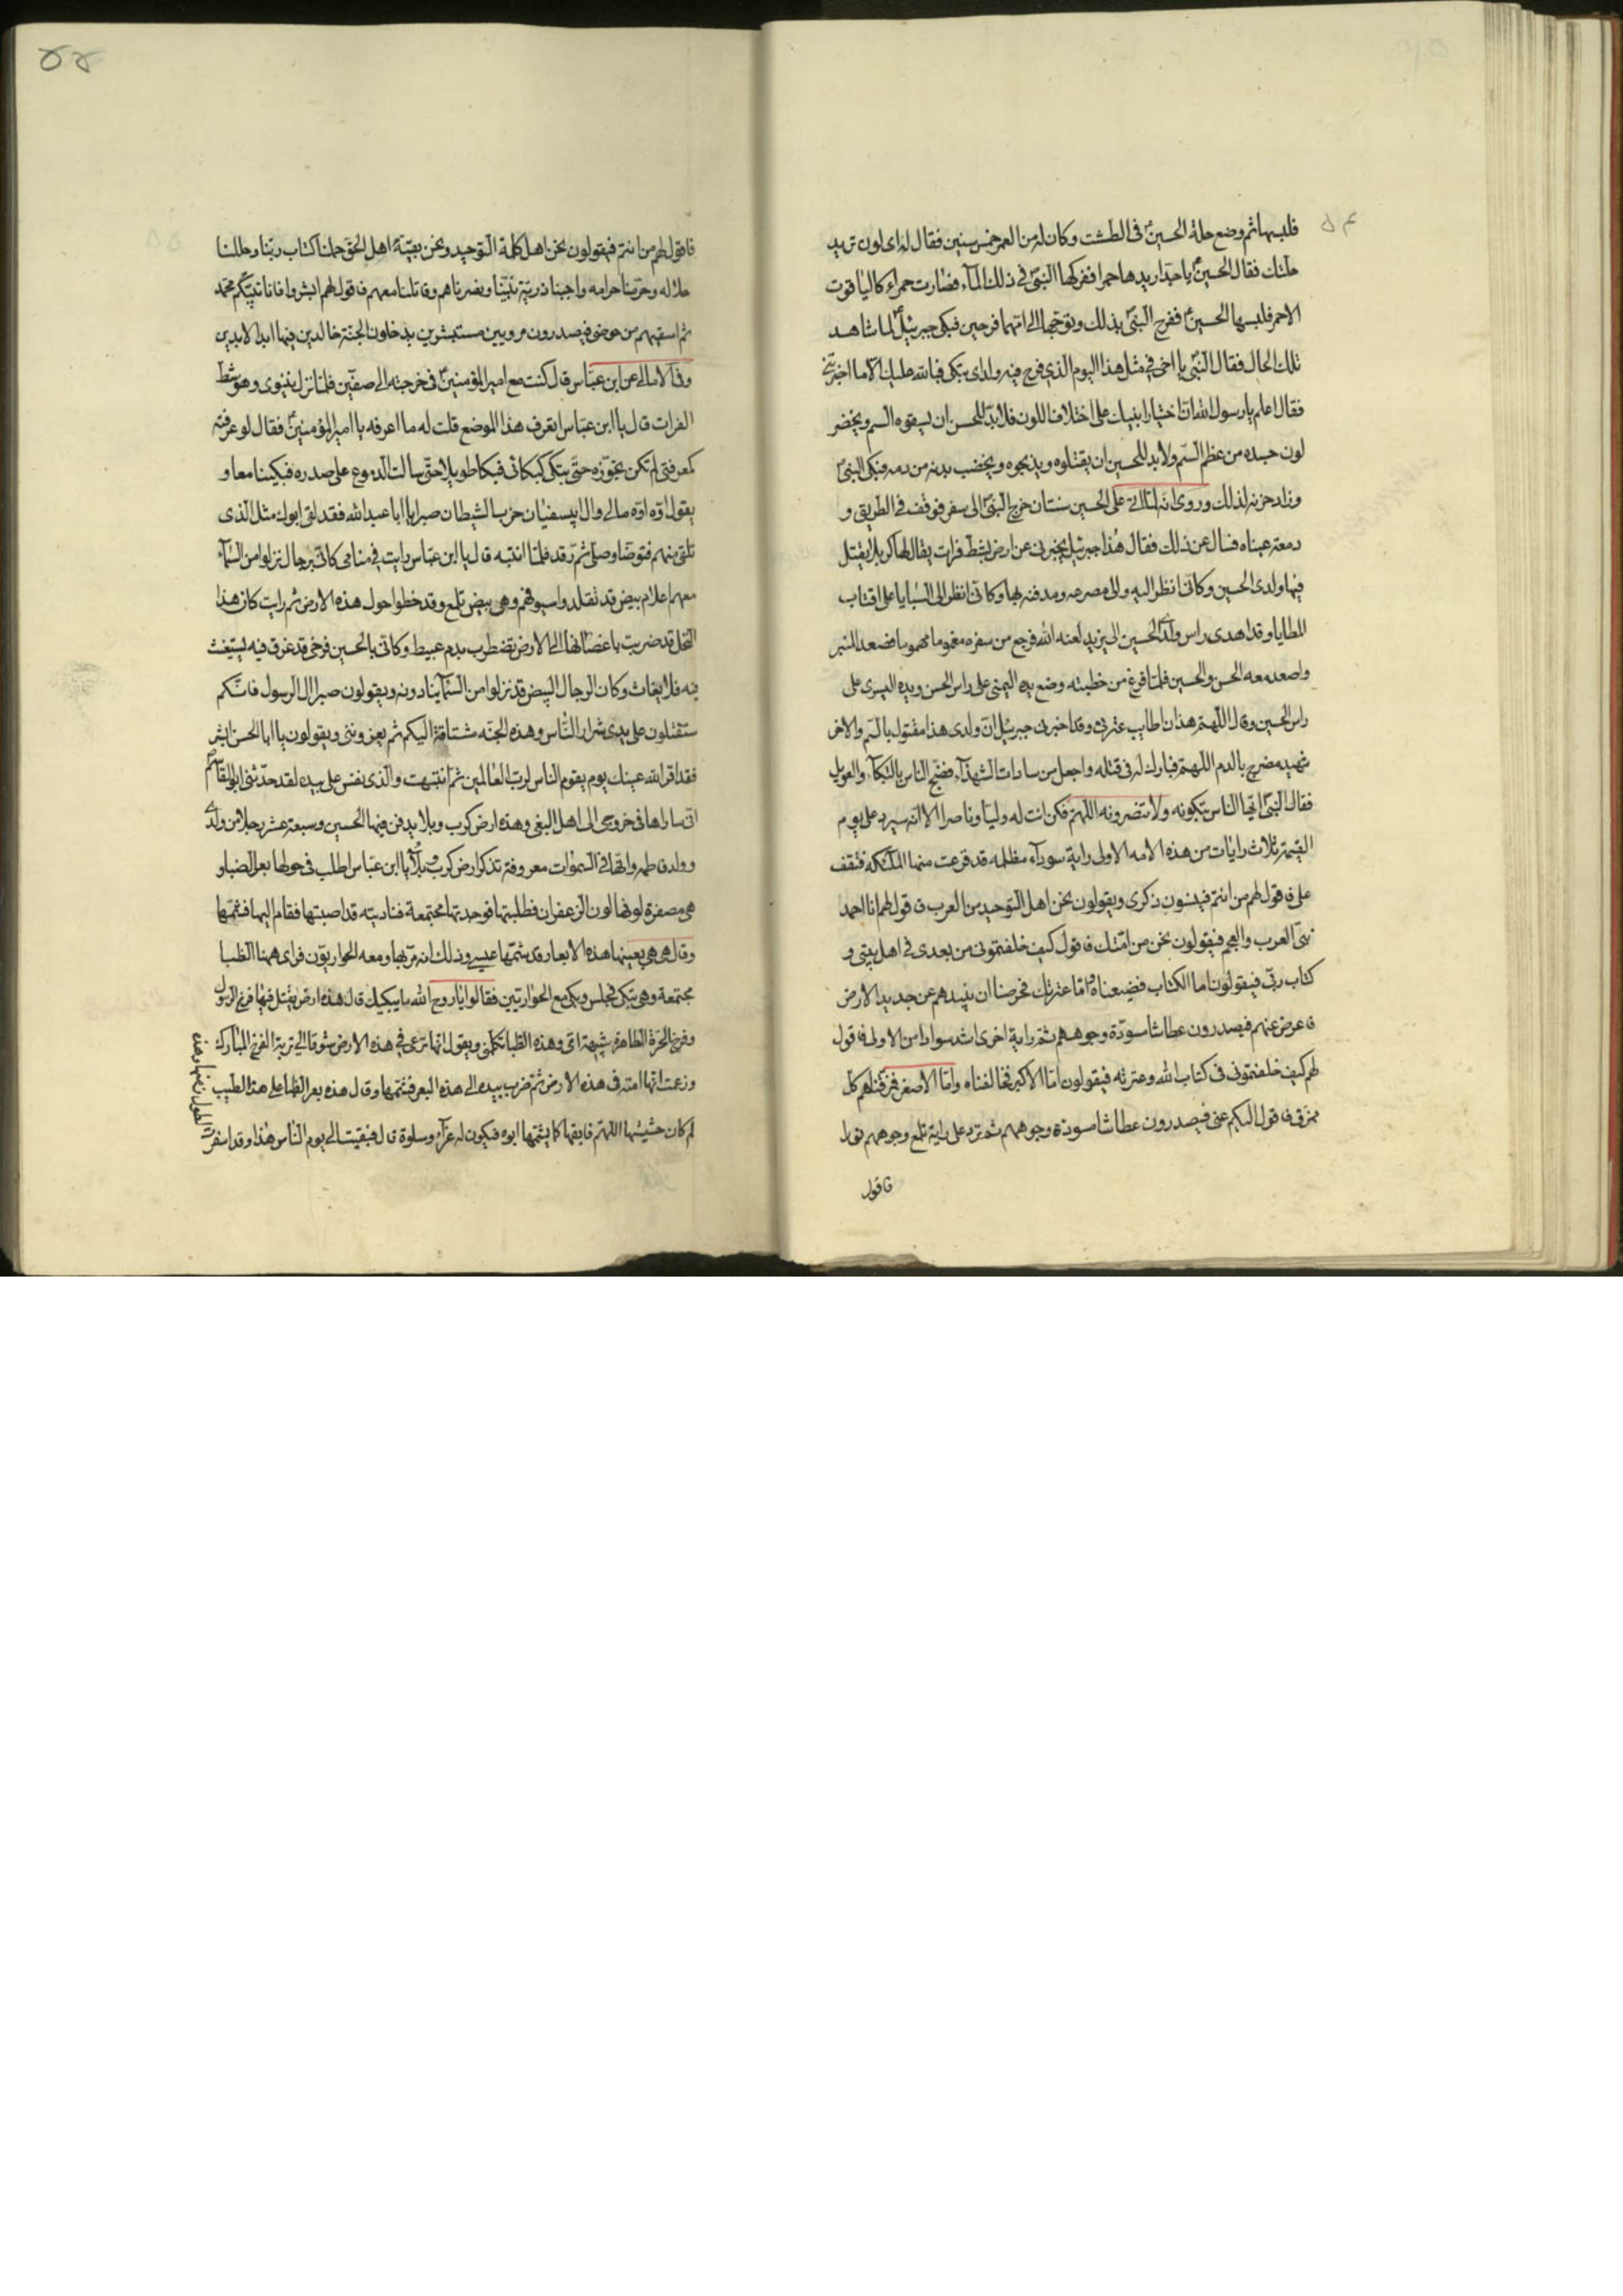 ۵۴
فلبسها ثم وضع حلة الحسين ع فى الطشت وكان له من العمر خمس سنين فقال له اى لون تريد
حلتك فقال الحسين ع يا جد اريدها حمرا ففركها النبى فى ذلك الماء فصارت حمراء كالياقوت
الاحمر فلبسها الحسين ع ففرح النبى بذلك وتوجها الى امهما فرحين فبكى جبرئيل ع لما شاهد
تلك الحال فقال النبى يا اخى فى مثل هذا اليوم الذى فرح فيه ولداى تبكى فبالله عليك الا ما اخبرتنى
فقال اعلم يا رسول الله ان اختيار ابنيك على اختلاف اللون فلا بد للحسن ان يسقوه السم ويخضر
لون جسده من عظم السم ولا بد للحسين ان يقتلوه ويذبحوه ويخضب بدنه من دمه فبكى النبى
وزاد حزنه لذلك وروى انه لما اتى على الحسين سنتان خرج النبى الى سفر فوقف فى الطريق و
دمعت عيناه فسال عن ذلك فقال هذا جبرئيل يخبرنى عن ارض بشط فرات يقال لها كربلا يقتل
فيها ولدى الحسين وكانى انظر اليه والى مصرعه ومدفنه بها وكانى انظر الى السبايا على اقتاب
المطايا وقد اهدى راس ولدى الحسين الى يزيد لعنه الله فرجع من سفره مغموما مهموما فصعد المنبر
واصعد معه الحسن والحسين فلما فرغ من خطبته وضع يده اليمنى على راس الحسن ويده اليسرى على
راس الحسين وقال اللهم هذان اطايب عترتى وقد اخبرنى جبرئيل ان ولدى هذا مقتول بالسم والاخر
شهيد مضرج بالدم اللهم فبارك له فى قتله واجعل من سادات الشهداء فضج الناس بالبكاء والعويل
فقال النبى ايها الناس تبكونه ولا تنصرونه اللهم فكن انت له وليا وناصرا الا انه سيرد على يوم
القيمة ثلاث رايات من هذه الامه الاولى راية سوداء مظلمه قد فزعت منها الملئكه فتقف
على فاقول لهم من انتم فينسون ذكرى ويقولون نحن اهل التوحيد من العرب فاقول لهم انا احمد
نبى العرب والعجم فيقولون نحن من امتك فاقول كيف خلفتمونى من بعدى فى اهل بيتى و
كتاب ربى فيقولون اما الكتاب فضيعناه واما عترتك فحرصنا ان نبيدهم عن جديد الارض
فاعرض عنهم فيصدرون عطاشا مسودة وجوههم ثم ترد راية اخرى اشد سوادا من الاولى فاقول
لهم كيف خلفتمونى فى كتاب الله وعترته فيقولون اما الاكبر فخالفناه واما الاصغر فمزقناهم كل
ممزق فاقول اليكم عنى فيصدرون عطاشا مسودة وجوههم ثم ترد على راية تلمع وجوههم نورا
فاقول
۵۵
فاقول لهم من انتم فيقولون نحن اهل كلمة التوحيد ونحن بقية اهل الحق حملنا كتاب ربنا وحللنا
حلاله وحرمنا حرامه واحببنا ذرية نبينا ونصرناهم وقاتلنا معهم فاقول لهم ابشروا فانا نبيكم محمد
ثم اسقيهم من حوضى فيصدرون مرويين مستبشرين يدخلون الجنة خالدين فيها ابد الابدين
وفى الامالى عن ابن عباس قال كنت مع امير المؤمنين ع فى خرجته الى صفين فلما نزل بنينوى وهو شط
الفرات قال يا ابن عباس اتعرف هذا الموضع قلت له ما اعرفه يا امير المؤمنين ع فقال لو عرفته
كمعرفتى لم تكن تجوزه حتى تبكى كبكائى فبكا طويلا حتى سالت الدموع على صدره فبكينا معا و
يقول اوه اوه مالى وال ابيسفيان حزب الشيطان صبرا يا ابا عبد الله فقد لقى ابوك مثل الذى
تلقى منهم فتوضا وصلى ثم رقد فلما انتبه قال يا ابن عباس رايت فى منامى كانى برجال نزلوا من السماء
معهم اعلام بيض قد تقلدوا سيوفهم وهى بيض تلمع وقد خطوا حول هذه الارض ثم رايت كان هذا
النخل قد ضربت باغصانها الى الارض تضطرب بدم عبيط وكانى بالحسين فرخى قد غرق فيه يستغيث
فيه فلا يغاث وكان الرجال البيض قد نزلوا من السماء ينادونه ويقولون صبرا ال الرسول فانكم
ستقتلون على يدى شرار الناس وهذه الجنه مشتاقة اليكم ثم يعزوننى ويقولون يا ابا الحسن ابشر
فقد اقر الله عينك يوم يقوم الناس لرب العالمين ثم انتبهت والذى نفس على بيده لقد حدثنى ابو القاسم ص
انى ساراها فى خروجى الى اهل البغى وهذه ارض كرب وبلا يدفن فيها الحسين وسبعة عشر رجلا من ولدى
وولد فاطمه وانها فى السموات معروفة تذكر ارض كرب وبلا يا ابن عباس اطلب فى حولها بعر الضبا و
هى مصفرة لونها لون الزعفران فطلبتها فوجدتها مجتمعة فناديته قد اصبتها فقام اليها فشمها
وقال هى هى بعينها هذه الابعار قد شمها عيسى وذلك انه مر بها ومعه الحواريون فراى ههنا الظبا
مجتمعة وهى تبكى فجلس وبكى مع الحواريين فقالوا يا روح الله ما يبكيك قال هذه ارض يقتل فيها فرخ الرسول
وفرخ الحرة الطاهرة شبيهة امى وهذه الظبا تكلمنى ويقول انها ترعى فى هذه الارض شوقا الى تربة الفرخ المبارك
وزعمت انها امنه فى هذه الارض ثم ضرب بيده الى هذه البعر فشمها وقال هذه بعر الظبا على هذا الطيب
لم كان حشيشها اللهم فابقها كما يشمها ابوه فيكون له عزاء وسلوة قال فبقيت الى يوم الناس هذا وقد اصفرت